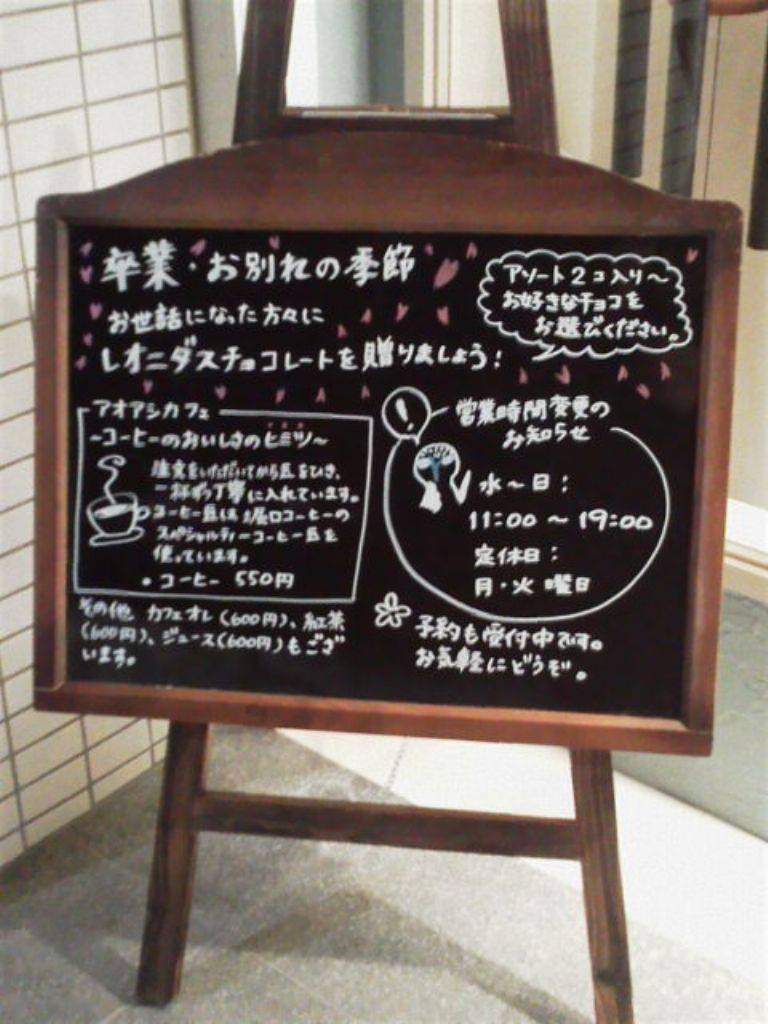 卒業・お別れの季節
お世話になった方々に
レオニダスチョコレートを贈りましょう！
アソート2コ入り〜
お好きなチョコを
お選びください。
アオアシカフェ
〜コーヒーのおいしさのヒミツ〜
注文をいただいてから豆をひき、
一杯ずつ丁寧に入れています。
コーヒー豆は堀口コーヒーの
スペシャルティーコーヒー豆を
使っています。
・コーヒー 550円
その他 カフェオレ(600円)、紅茶
(600円)、ジュース(600円)もござ
います。
営業時間変更の
お知らせ
水〜日：
11:00 〜 19:00
定休日：
月・火曜日
予約も受付中です。
お気軽にどうぞ。